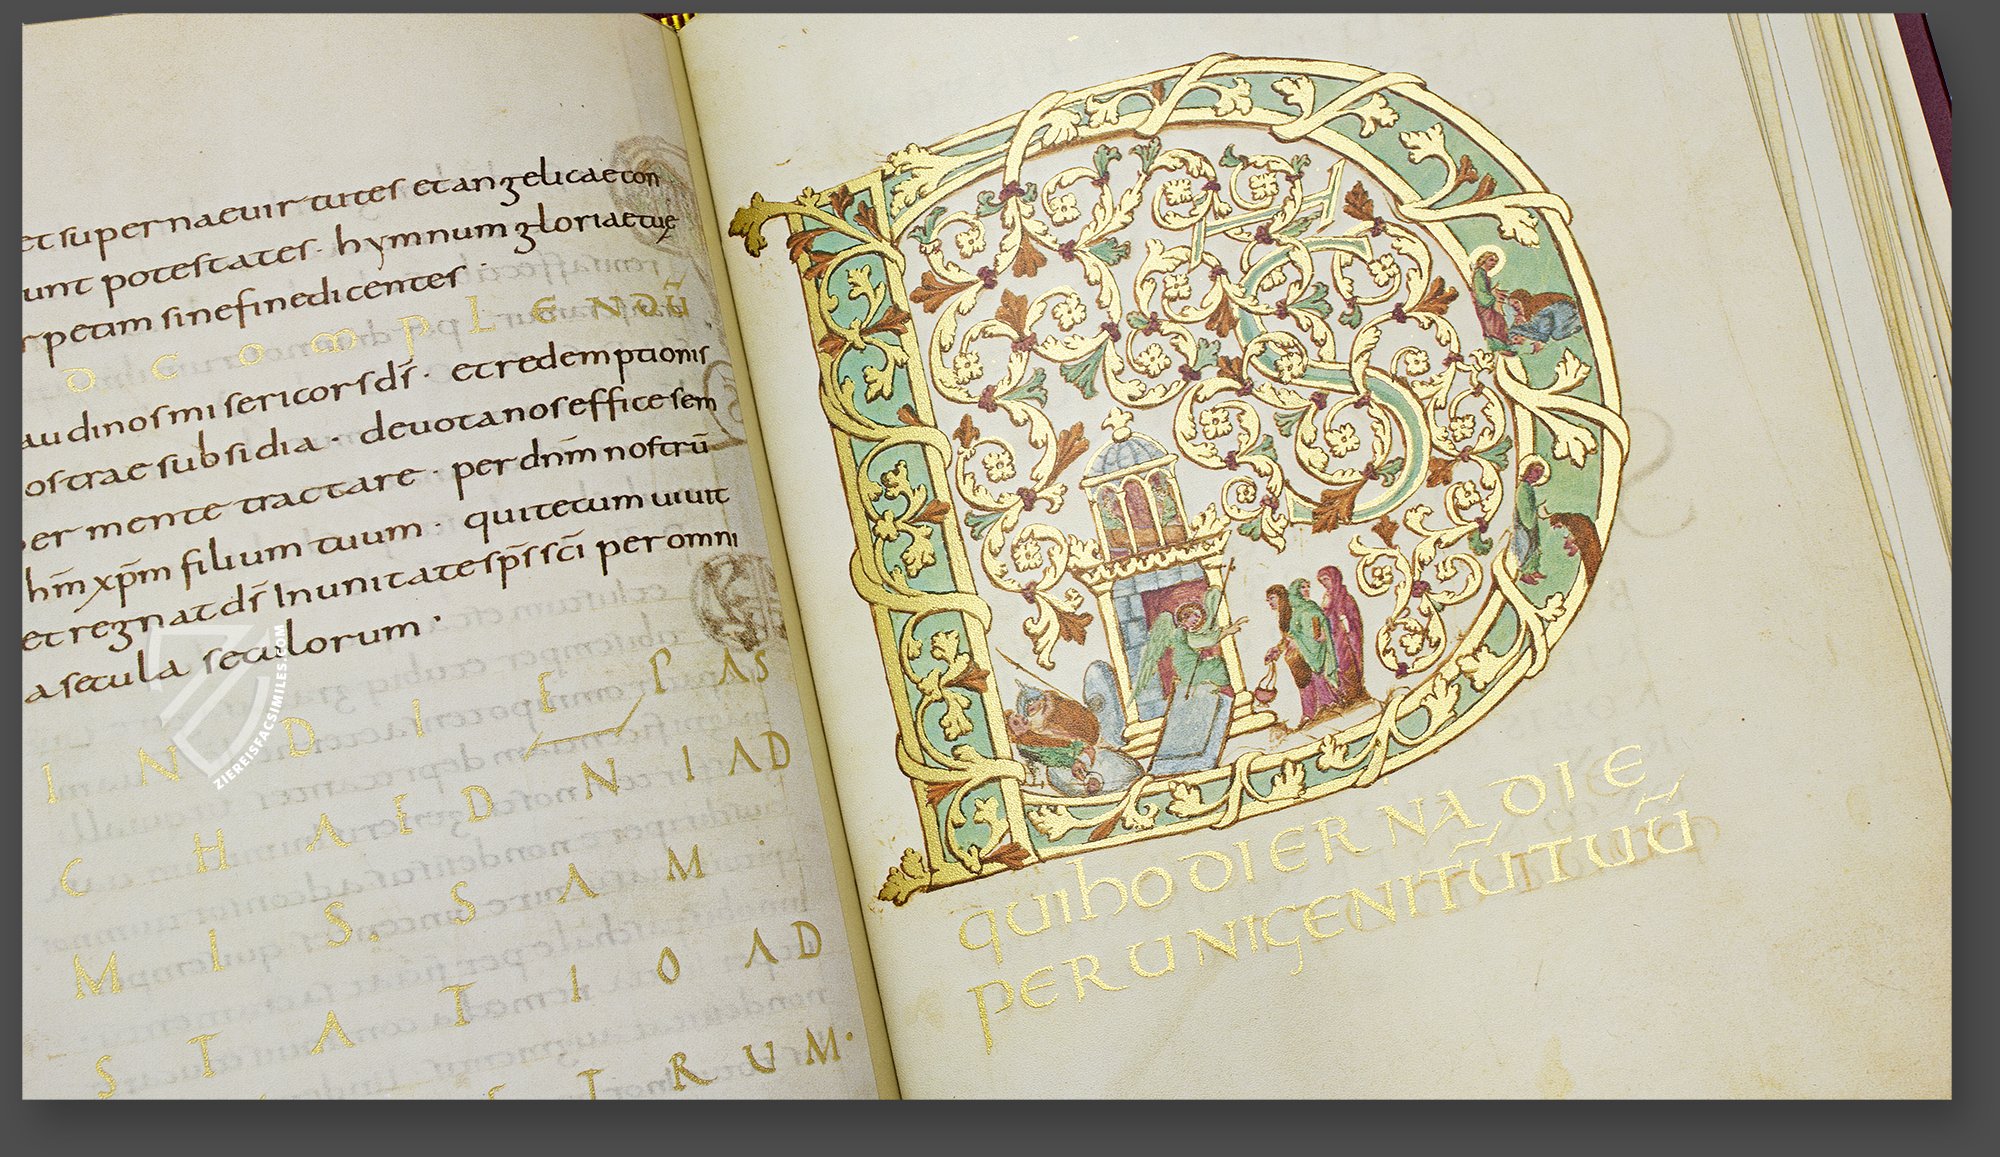 et supernae uirtutes et angelicae con
unt potestates · hymnum gloriae tuę
petim sine fine dicentes ·
AD COMPLENDŪ
audi nos misericors dī · et redemptionis
ostrae subsidia · deuota nos effice sem
er mente tractare · per dnm nostrū
hm xpm filium tuum · qui tecum uiuit
et regnat dī In unitate sps scī per omni
a secula seculorum ·
IN DIE PAS
CHAE AD NI AD
MISSAM ·
STATIO AD
TRUM ·
DS
qui hODIERNA DIE
PER UNIGENITŪ TUŪ
ZIEREISFACSIMILES.COM